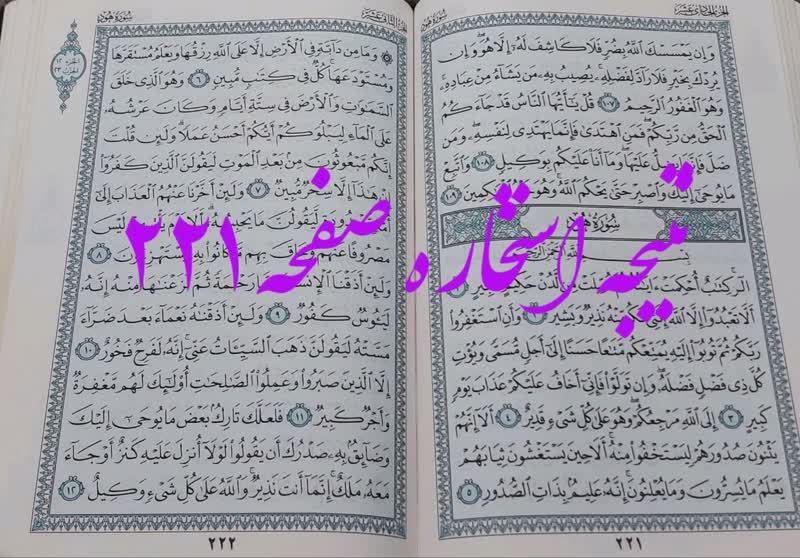 الجزء الحادي عشر
سورة هود
وإن يمسسك الله بضر فلا كاشف له إلا هو وإن
يردك بخير فلا راد لفضله يصيب به من يشاء من عباده
وهو الغفور الرحيم ١٠٧ قل يأيها الناس قد جاءكم
الحق من ربكم فمن اهتدى فإنما يهتدي لنفسه ومن
ضل فإنما يضل عليها وما أنا عليكم بوكيل ١٠٨ واتبع
ما يوحى إليك واصبر حتى يحكم الله وهو خير الحكمين ١٠٩
سورة هود
بسم الله الرحمن الرحيم
الر كتب أحكمت ءايته ثم فصلت من لدن حكيم خبير ١
ألا تعبدوا إلا الله إنني لكم منه نذير وبشير ٢ وأن استغفروا
ربكم ثم توبوا إليه يمتعكم متعا حسنا إلى أجل مسمى ويؤت
كل ذي فضل فضله وإن تولوا فإني أخاف عليكم عذاب يوم
كبير ٣ إلى الله مرجعكم وهو على كل شيء قدير ٤ ألا إنهم
يثنون صدورهم ليستخفوا منه ألا حين يستغشون ثيابهم
يعلم ما يسرون وما يعلنون إنه عليم بذات الصدور ٥
٢٢١
الجزء الثاني عشر
سورة هود
الجزء ١٢
الحزب ٢٣
وما من دابة في الأرض إلا على الله رزقها ويعلم مستقرها
ومستودعها كل في كتب مبين ٦ وهو الذي خلق
السموت والأرض في ستة أيام وكان عرشه
على الماء ليبلوكم أيكم أحسن عملا ولئن قلت
إنكم مبعوثون من بعد الموت ليقولن الذين كفروا
إن هذا إلا سحر مبين ٧ ولئن أخرنا عنهم العذاب إلى
أمة معدودة ليقولن ما يحبسه ألا يوم يأتيهم ليس
مصروفا عنهم وحاق بهم ما كانوا به يستهزءون ٨
ولئن أذقنا الإنسن منا رحمة ثم نزعنها منه إنه
ليئوس كفور ٩ ولئن أذقنه نعماء بعد ضراء
مسته ليقولن ذهب السيئات عني إنه لفرح فخور ١٠
إلا الذين صبروا وعملوا الصلحت أولئك لهم مغفرة
وأجر كبير ١١ فلعلك تارك بعض ما يوحى إليك
وضائق به صدرك أن يقولوا لولا أنزل عليه كنز أو جاء
معه ملك إنما أنت نذير والله على كل شيء وكيل ١٢
٢٢٢
نتیجه استخاره صفحه ۲۲۱